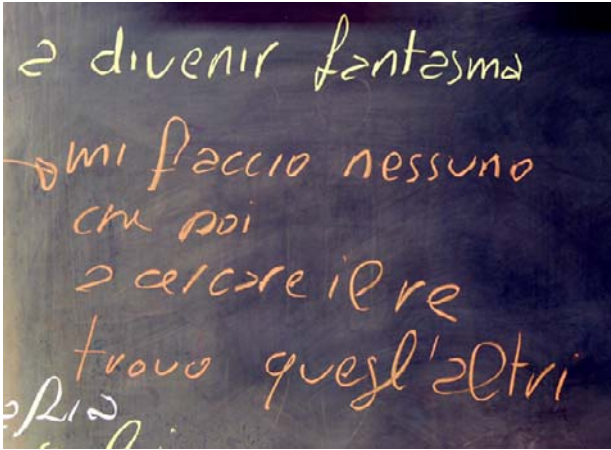 a divenir fantasma
mi faccio nessuno
che poi
a cercare il re
trovo quegl'altri